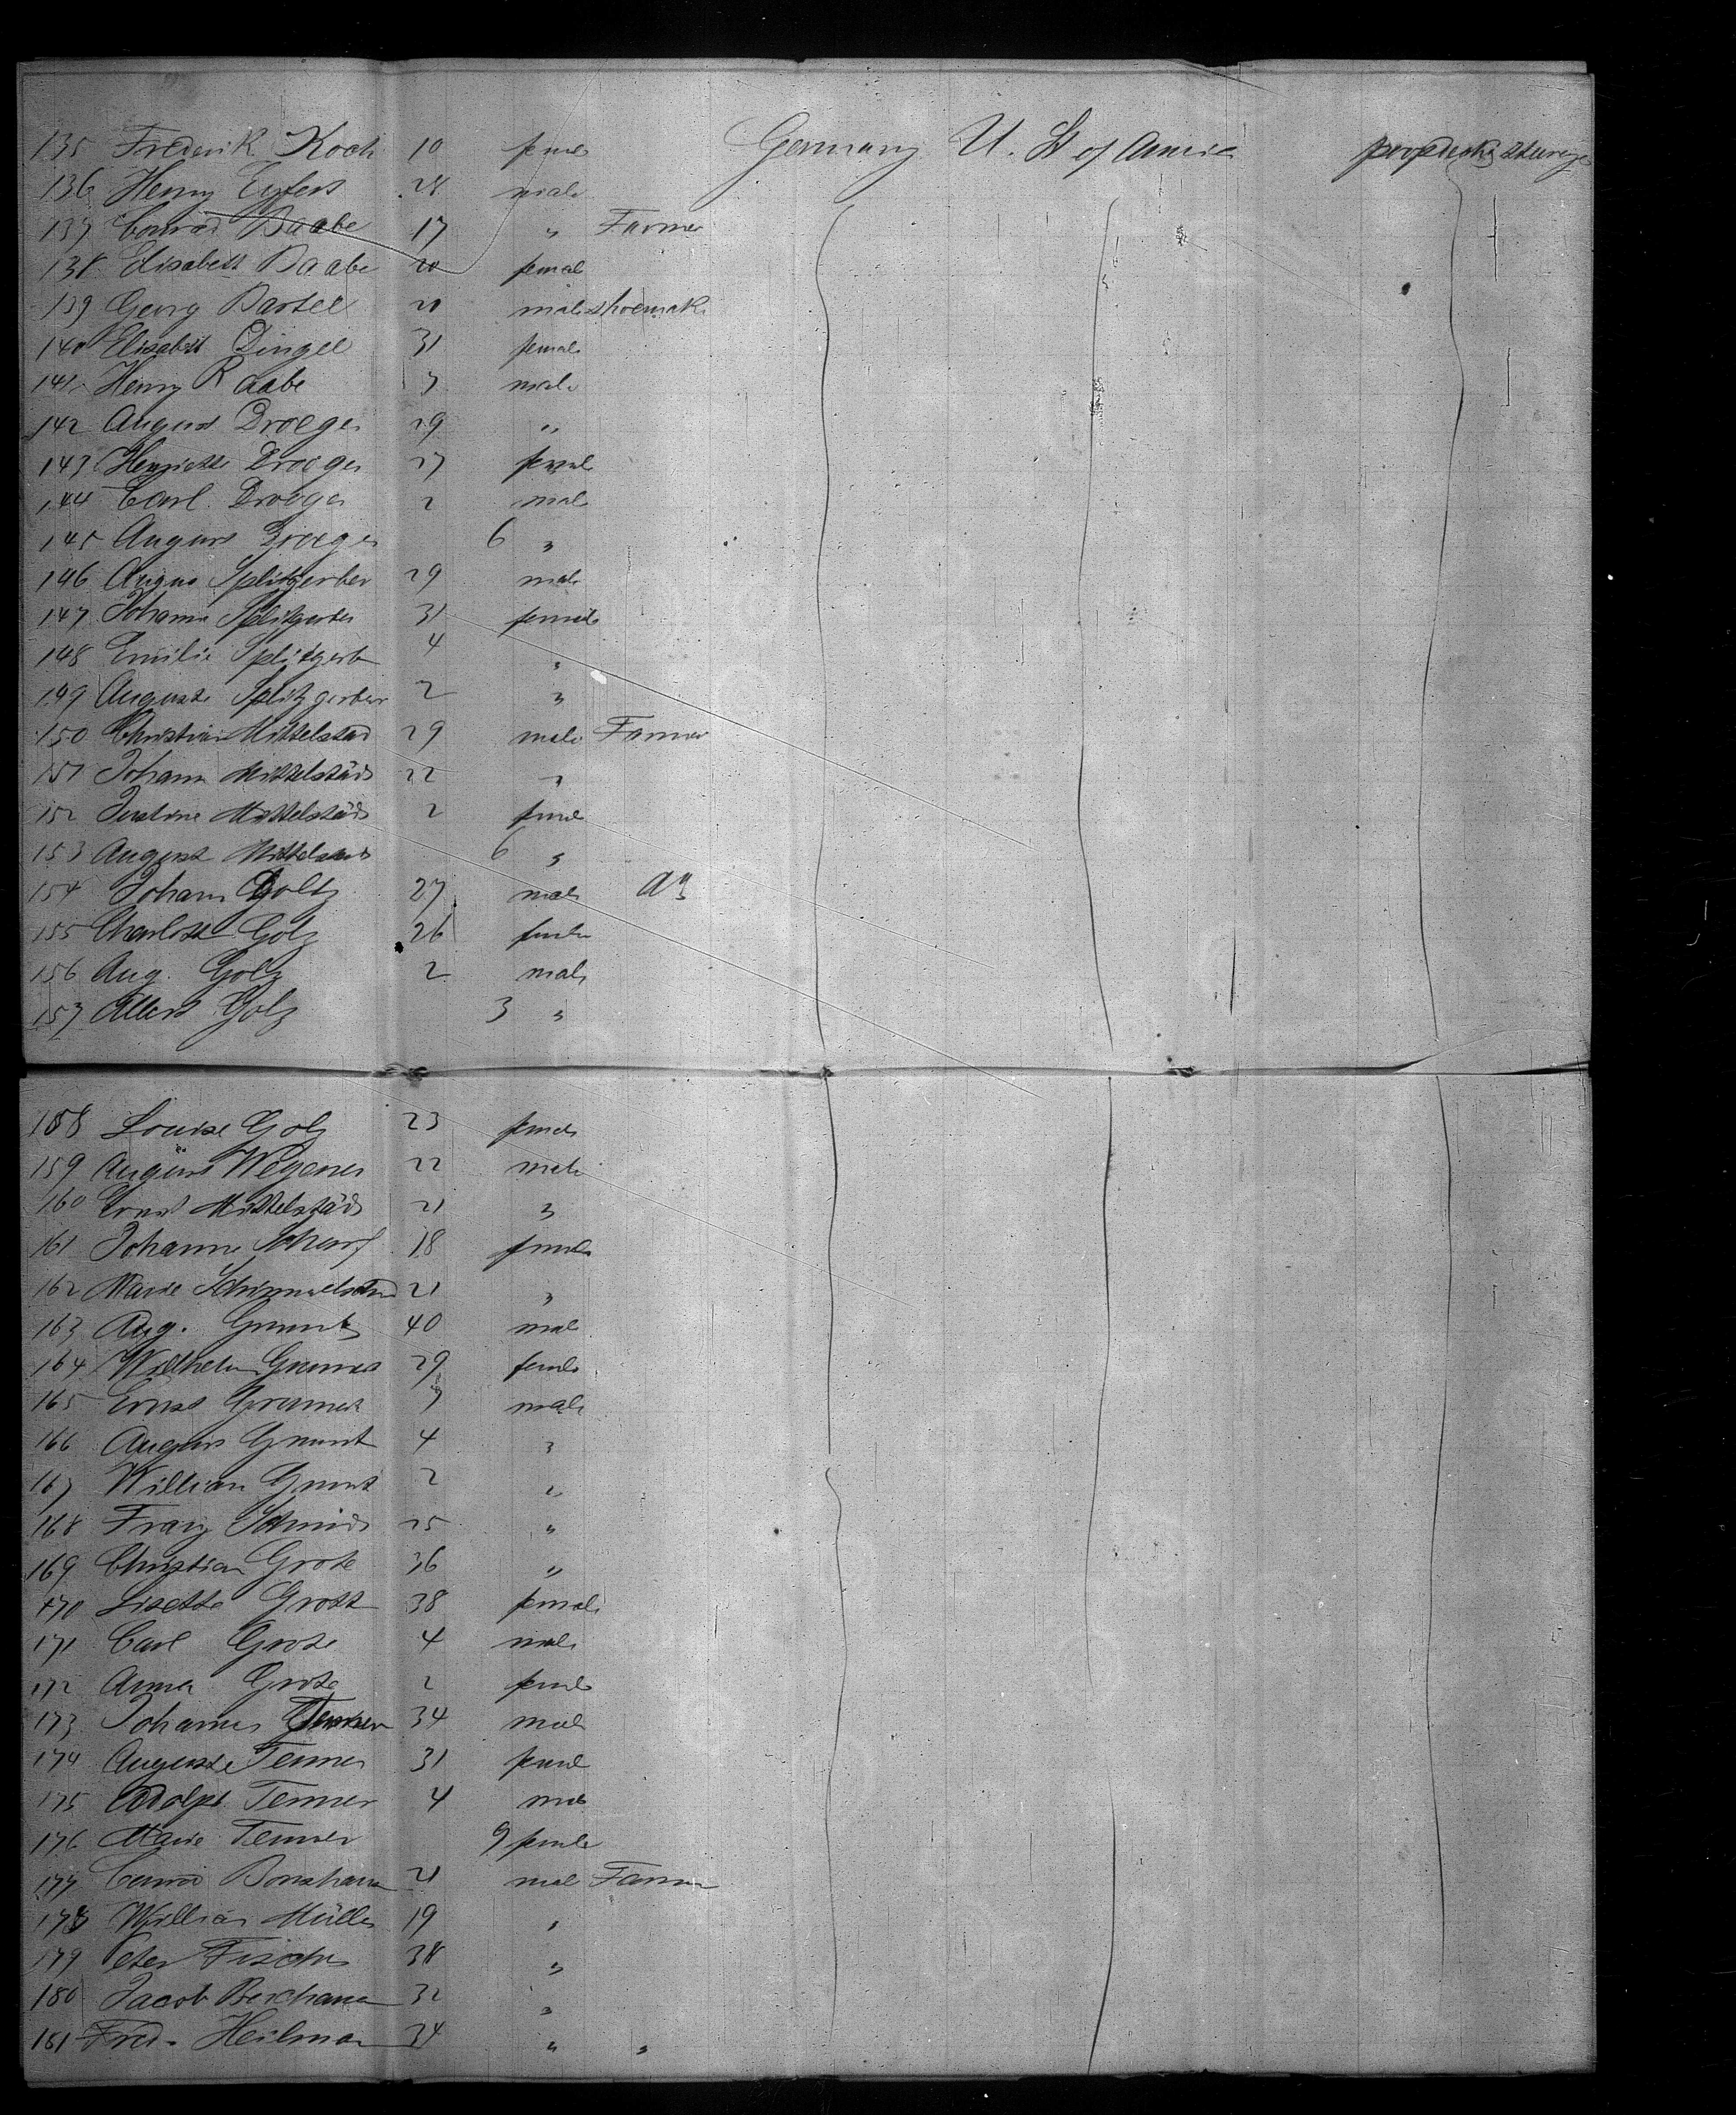 135 Frederik Koch 10 female Germany U. St of America
136 Henry 28 male
137 Conrad Raabe 17 " Farmer
138 Elisabeth Raabe 20 female
139 Georg Bartel 21 male shoemak
140 Elisabeth Dingel 31 female
141 Henry Raabe 7 male
142 August Droeger 29 "
143 Henriette Droeger 27 female
144 Carl Droeger 2 male
145 August Droeger 6 "
146 August Splitzgerber 29 male
147 Johanna Splitzgerber 31 female
148 Emilie Splitzgerb 4 "
149 Auguste Splitzgerber 2 "
150 Christian Mittelstäd 29 male Farmer
151 Johann Mittelstäd 22 "
152 Justine Mittelstäd 2 female
153 August Mittelstäd 6 "
154 Johann Goltz 27 male
155 Charlotte Golz 26 female
156 Aug. Golz 2 male
157 Albert Golz 3 "
158 Louise Golz 23 female
159 August Wegener 22 male
160 Ernst Mittelstäd 21 "
161 Johanne Scharf 18 female
162 Marie 21 "
163 Aug. 40 male
164 Wilhelm 29 female
165 Ernst 7 male
166 August 4 "
167 William 2 "
168 Franz Schmid 25 "
169 Christian Grote 36 "
170 Lisette Grote 38 female
171 Carl Grote 4 male
172 Anna Grote 2 female
173 Johannes Tenner 34 male
174 Auguste Tenner 31 female
175 Adolph Tenner 4 male
176 Marie Tenner 9 female
177 Conrad 21 male Farmer
178 William Müller 19 "
179 Peter Fischer 38 "
180 Jacob 32 "
181 Fred. Heilman 34 " "